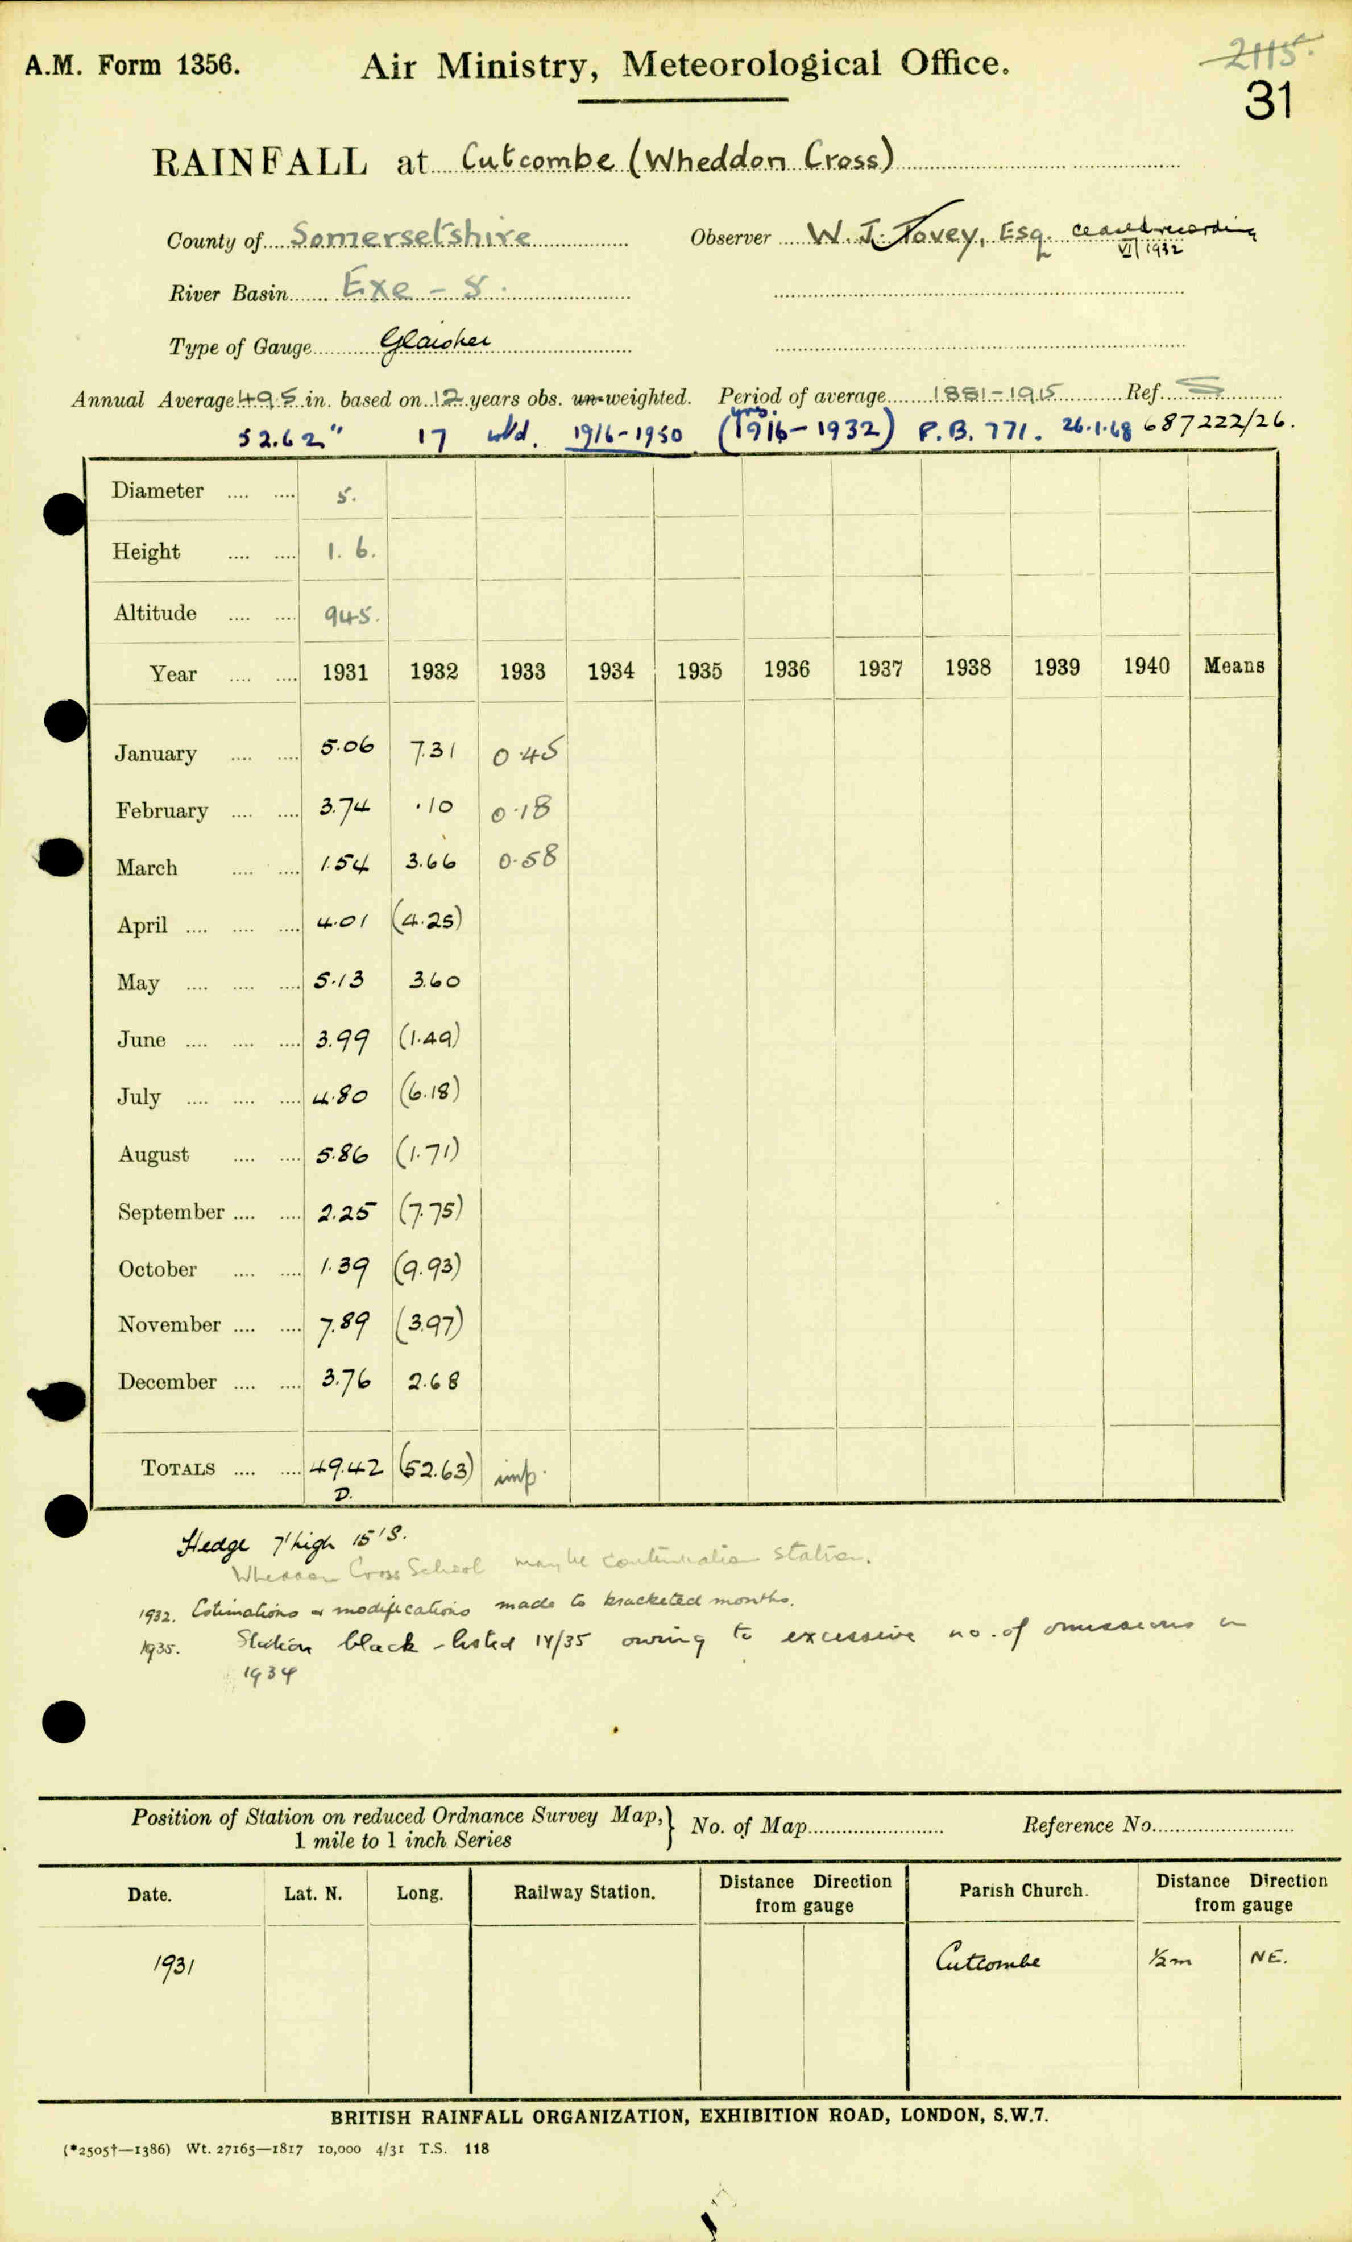 A.M. Form 1356.
Air Ministry, Meteorological Office.
2115
31
RAINFALL at Cutcombe (Wheddon Cross)
County of Somersetshire
Observer W. J. Tovey, Esq. ceased recording
VII/1932
River Basin Exe - S.
Type of Gauge Glaisher
Annual Average 49.5 in. based on 12 years obs. un-weighted. Period of average 1881-1915 Ref. S
52.62" 17 wtd. 1916-1950 (yrs. 1916-1932) P.B. 771. 26.1.68 687222/26.
Diameter .... .... 5.
Height .... .... 1. 6.
Altitude .... .... 945.
Year .... .... 1931 1932 1933 1934 1935 1936 1937 1938 1939 1940 Means
January .... .... 5.06 7.31 0.45
February .... .... 3.74 .10 0.18
March .... .... 1.54 3.66 0.58
April .... .... .... 4.01 (4.25)
May .... .... .... 5.13 3.60
June .... .... .... 3.99 (1.49)
July .... .... .... 4.80 (6.18)
August .... .... 5.86 (1.71)
September .... .... 2.25 (7.75)
October .... .... 1.39 (9.93)
November .... .... 7.89 (3.97)
December .... .... 3.76 2.68
TOTALS .... .... 49.42 (52.63) imp.
D.
Hedge 7' high 15' S.
Wheddon Cross School may be continuation station.
1932. Estimations & modifications made to bracketed months.
1935. Station black-listed 14/35 owing to excessive no. of omissions in
1934
Position of Station on reduced Ordnance Survey Map, } No. of Map Reference No.
1 mile to 1 inch Series
Date. Lat. N. Long. Railway Station. Distance Direction from gauge Parish Church. Distance Direction from gauge
1931 Cutcombe ½m NE.
BRITISH RAINFALL ORGANIZATION, EXHIBITION ROAD, LONDON, S.W.7.
(*2505†—1386) Wt. 27165—1817 10,000 4/31 T.S. 118